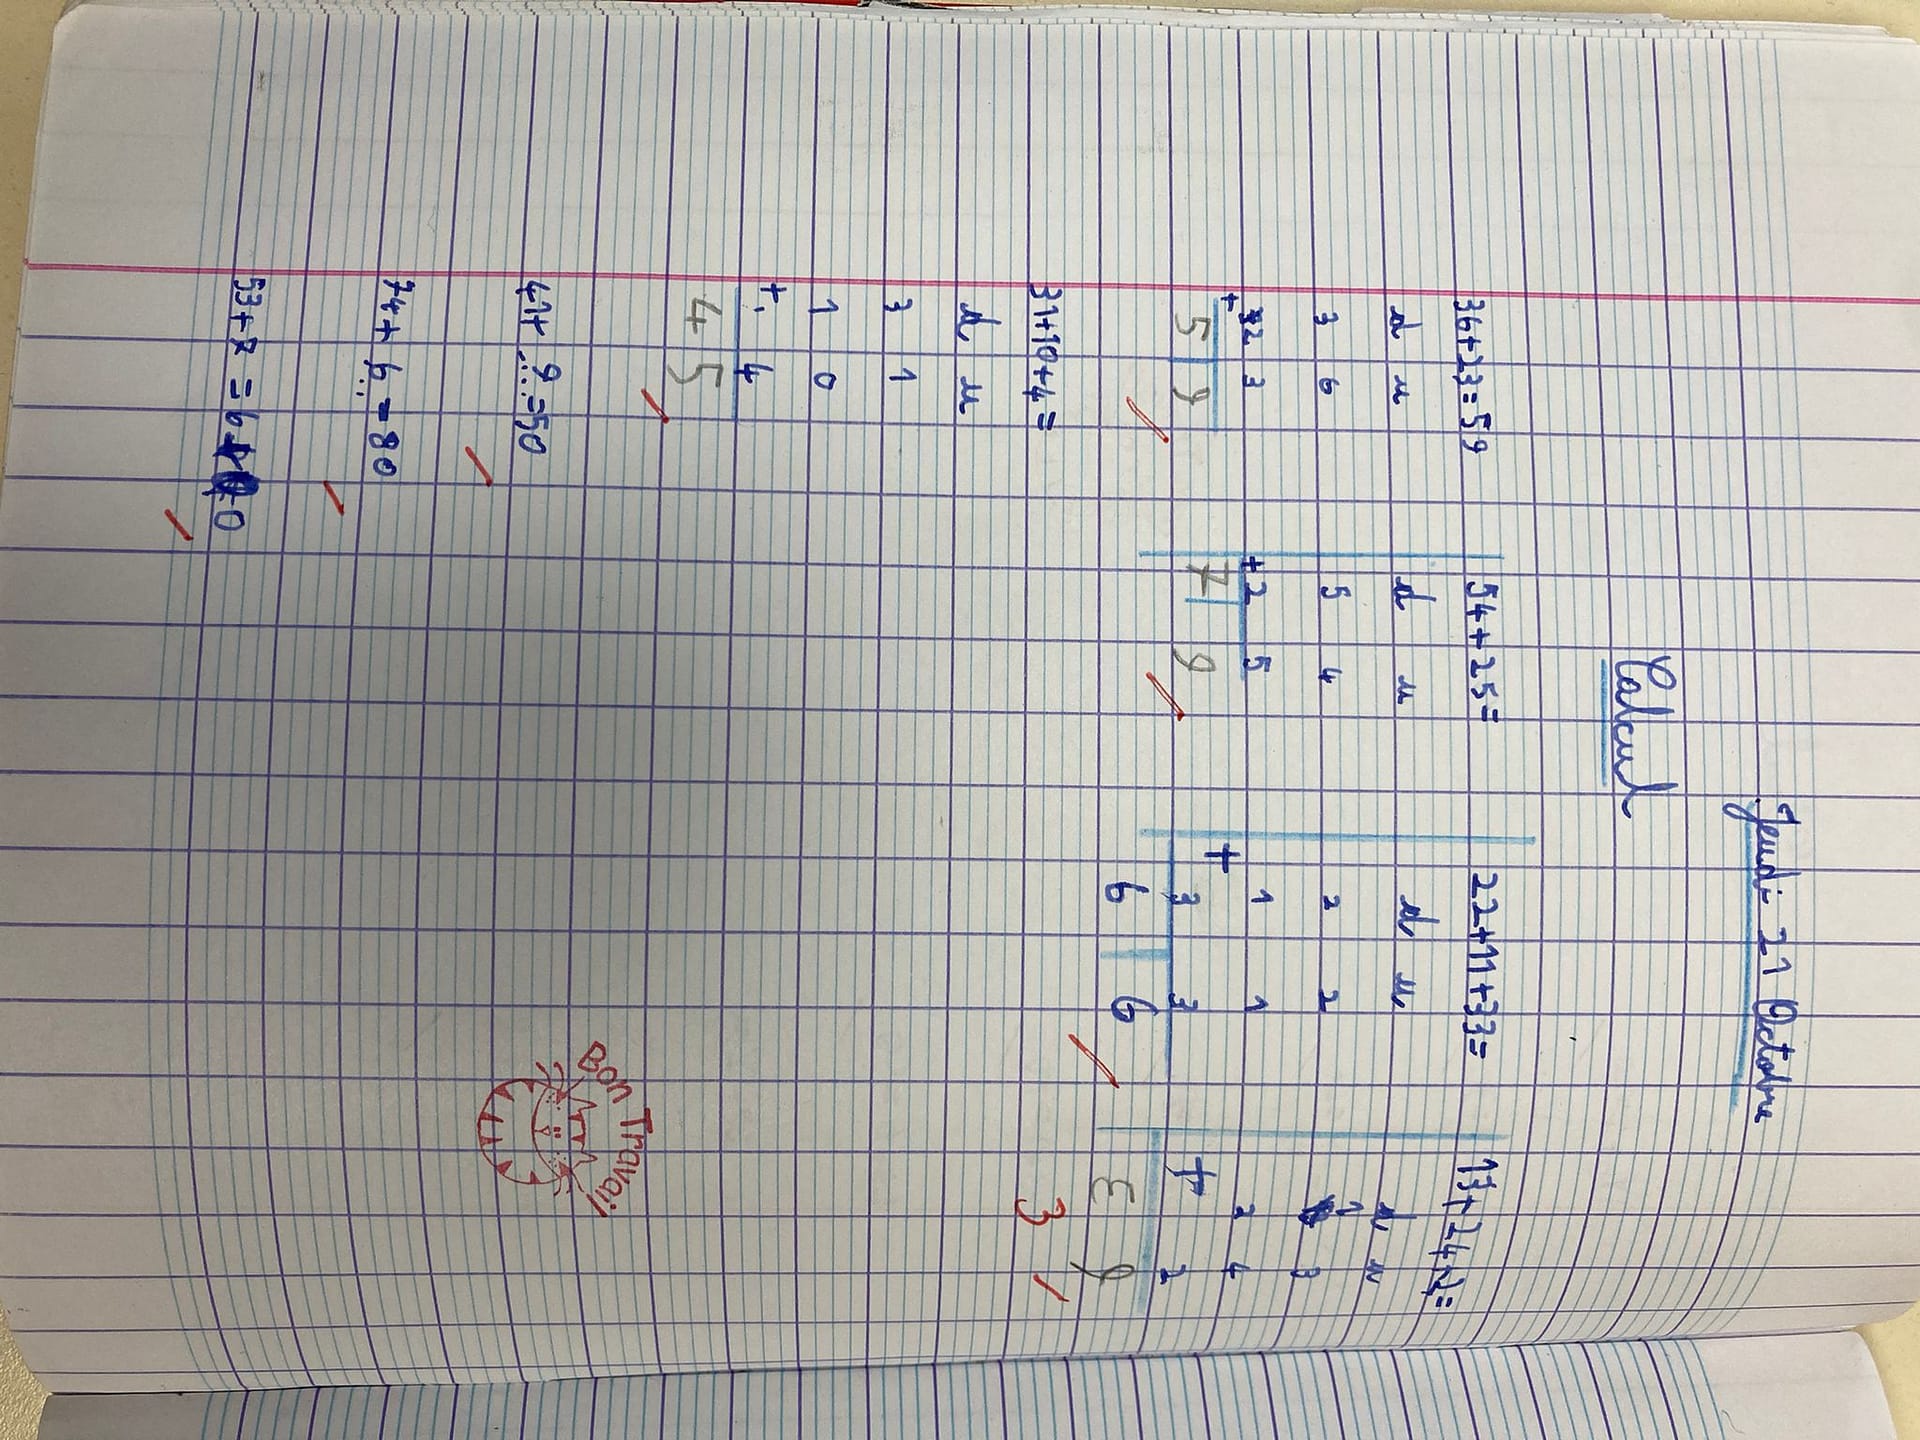 Jeudi 21 Octobre
Calcul
36+23=59 54+25= 22+11+33= 13+24+2=
d u d u d u d u
3 6 5 4 2 2 1 3
+ 2 3 +2 5 1 1 2 4
5 9 7 9 + 3 3 + 2
6 6 3 9
3
31+10+4=
d u
3 1
1 0
+ 4
4 5
41+ 9 =50
74+ 6 = 80
53+7 = 60
Bon Travail